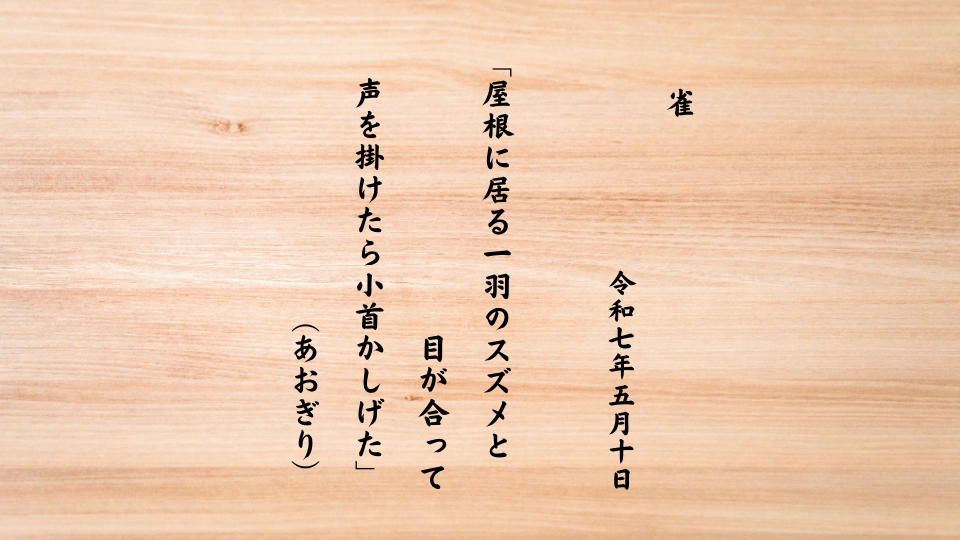 雀
令和七年五月十日
「屋根に居る一羽のスズメと
目が合って
声を掛けたら小首かしげた」
（あおぎり）